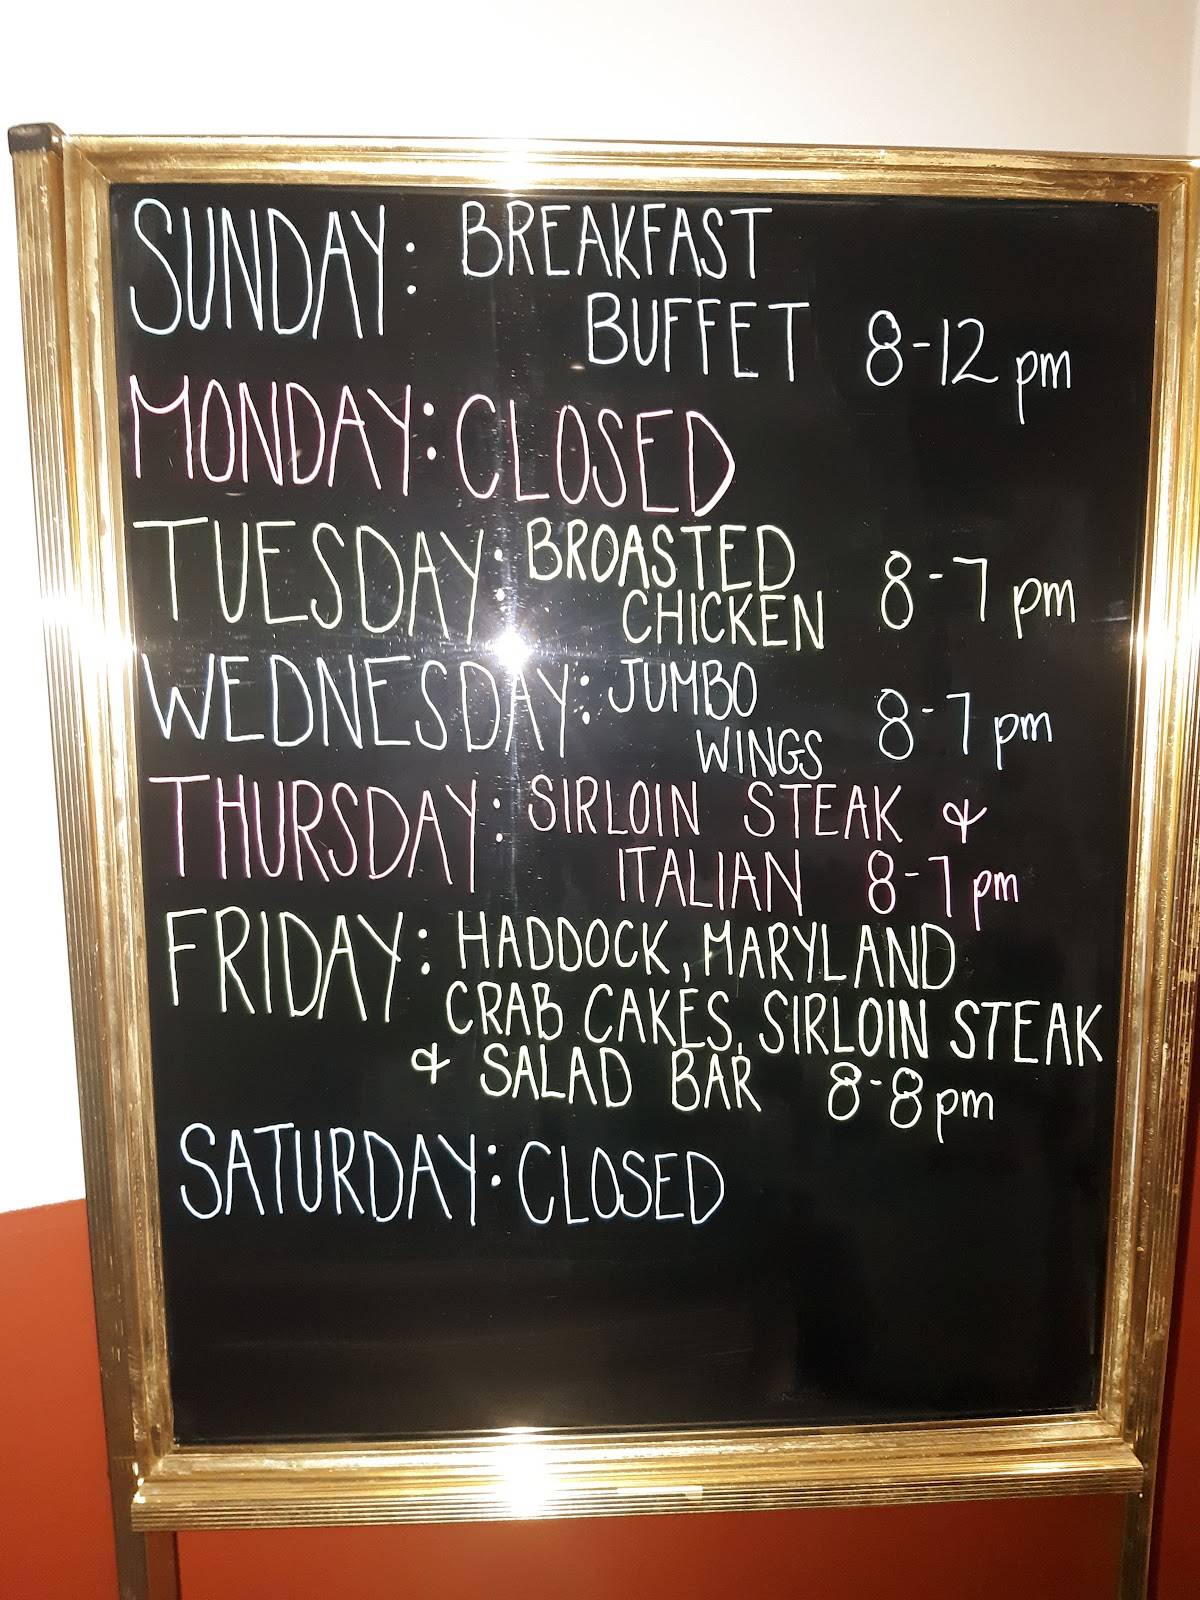 SUNDAY: BREAKFAST
BUFFET 8-12 pm
MONDAY: CLOSED
TUESDAY: BROASTED
CHICKEN 8-7 pm
WEDNESDAY: JUMBO
WINGS 8-7 pm
THURSDAY: SIRLOIN STEAK &
ITALIAN 8-7 pm
FRIDAY: HADDOCK, MARYLAND
CRAB CAKES, SIRLOIN STEAK
& SALAD BAR 8-8 pm
SATURDAY: CLOSED